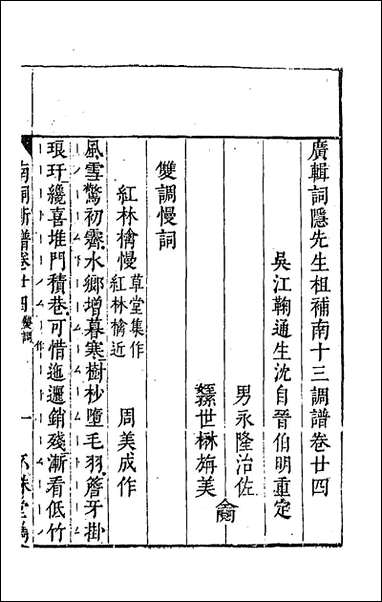 廣輯詞隱先生祖補南十三調譜卷廿四
吳江鞠通生沈自晉伯明重定
男永隆治佐
孫世楙旃美
仝閱
雙調慢詞
紅林檎慢 草堂集作紅林檎近 周美成作
風雪驚初霽水鄉增暮寒樹杪墮毛羽簷牙掛
琅玕纔喜堆門積巷可惜迤邐銷殘漸看低竹
南詞新譜卷廿四 雙調 一 不殊堂